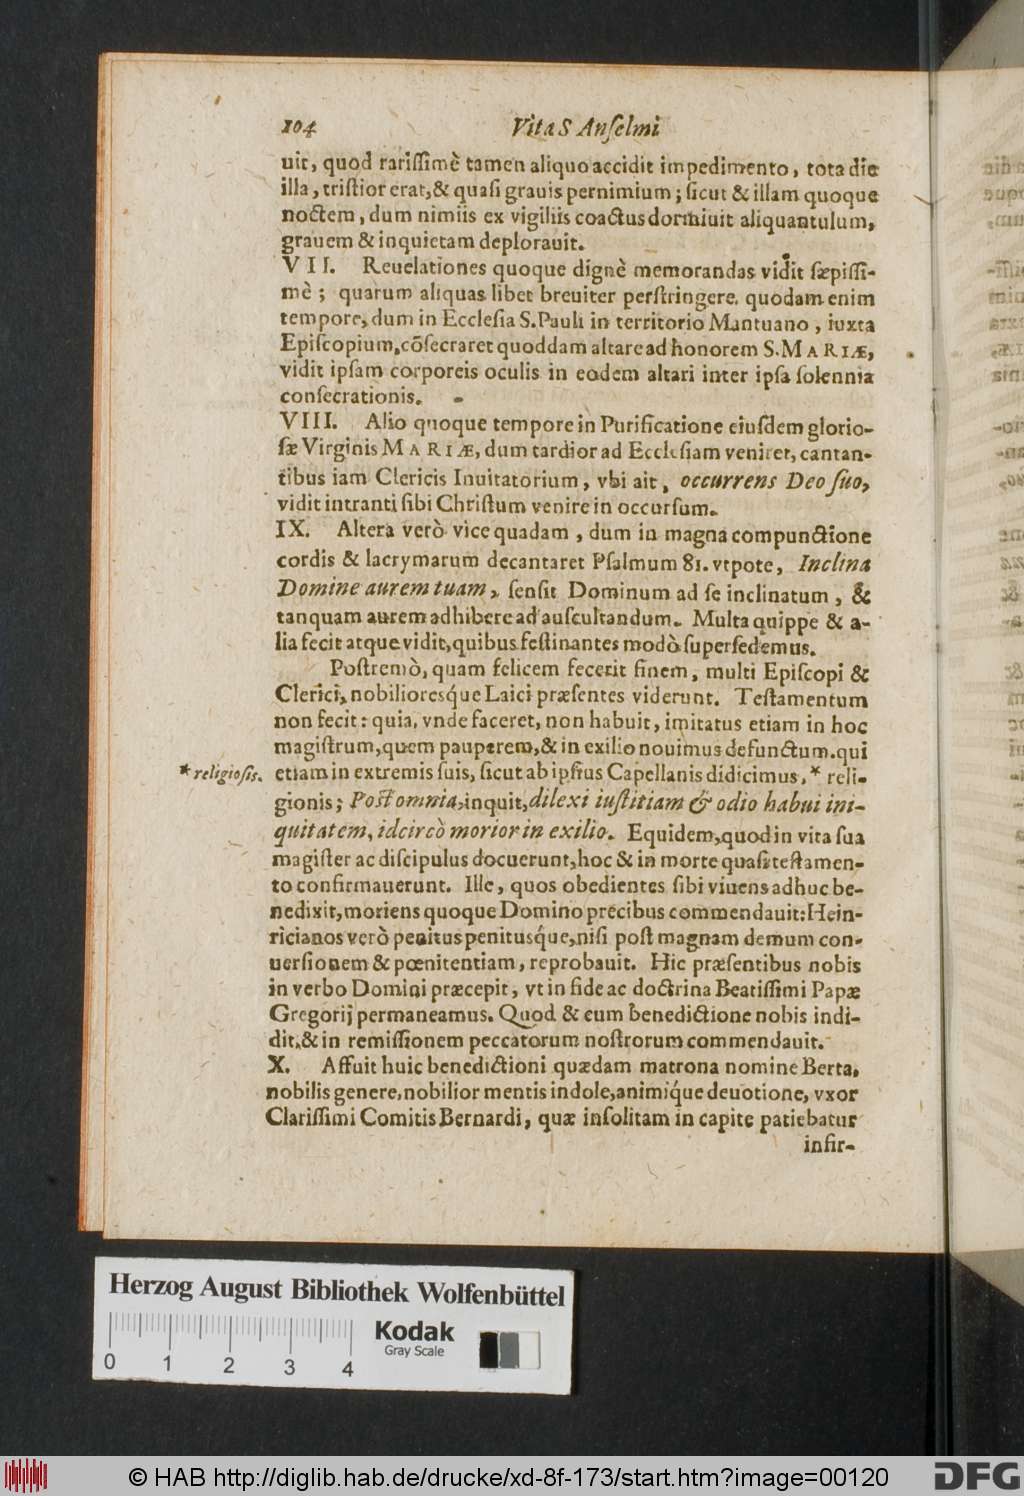 104 Vita S Anſelmi
uit, quod rariſſimè tamen aliquo accidit impedimento, tota die
illa, triſtior erat, & quaſi grauis pernimium; ſicut & illam quoque
noctem, dum nimiis ex vigiliis coactus dormiuit aliquantulum,
grauem & inquietam deplorauit.
VII. Reuelationes quoque dignè memorandas vidit ſæpiſſi-
mè; quarum aliquas libet breuiter perſtringere. quodam enim
tempore, dum in Eccleſia S. Pauli in territorio Mantuano, iuxta
Epiſcopium, cõſecraret quoddam altare ad honorem S. MARIÆ,
vidit ipſam corporeis oculis in eodem altari inter ipſa ſolennia
conſecrationis.
VIII. Alio quoque tempore in Purificatione eiuſdem glorio-
ſæ Virginis MARIÆ, dum tardior ad Eccleſiam veniret, cantan-
tibus iam Clericis Inuitatorium, vbi ait, occurrens Deo ſuo,
vidit intranti ſibi Chriſtum venire in occurſum.
IX. Altera verò vice quadam, dum in magna compunctione
cordis & lacrymarum decantaret Pſalmum 81. vtpote, Inclina
Domine aurem tuam, ſenſit Dominum ad ſe inclinatum, &
tanquam aurem adhibere ad auſcultandum. Multa quippe & a-
lia fecit atque vidit, quibus feſtinantes modò ſuperſedemus.
Poſtremò, quam felicem fecerit finem, multi Epiſcopi &
Clerici, nobilioresq́ue Laici præſentes viderunt. Teſtamentum
non fecit: quia, vnde faceret, non habuit, imitatus etiam in hoc
magiſtrum, quem pauperem, & in exilio nouimus defunctum. qui
*religioſis. etiam in extremis ſuis, ſicut ab ipſius Capellanis didicimus, * reli-
gionis; Poſt omnia, inquit, dilexi iuſtitiam & odio habui ini-
quitatem, idcircò morior in exilio. Equidem, quod in vita ſua
magiſter ac diſcipulus docuerunt, hoc & in morte quaſi teſtamen-
to confirmauerunt. Ille, quos obedientes ſibi viuens adhuc be-
nedixit, moriens quoque Domino precibus commendauit: Hein-
ricianos verò penitus penitusq́ue, niſi poſt magnam demum con-
uerſionem & pœnitentiam, reprobauit. Hic præſentibus nobis
in verbo Domini præcepit, vt in fide ac doctrina Beatiſſimi Papæ
Gregorij permaneamus. Quod & cum benedictione nobis indi-
dit, & in remiſſionem peccatorum noſtrorum commendauit.
X. Affuit huic benedictioni quædam matrona nomine Berta,
nobilis genere, nobilior mentis indole, animiq́ue deuotione, vxor
Clariſſimi Comitis Bernardi, quæ inſolitam in capite patiebatur
infir-
Herzog August Bibliothek Wolfenbüttel
0 1 2 3 4
Kodak
Gray Scale
© HAB http://diglib.hab.de/drucke/xd-8f-173/start.htm?image=00120
DFG